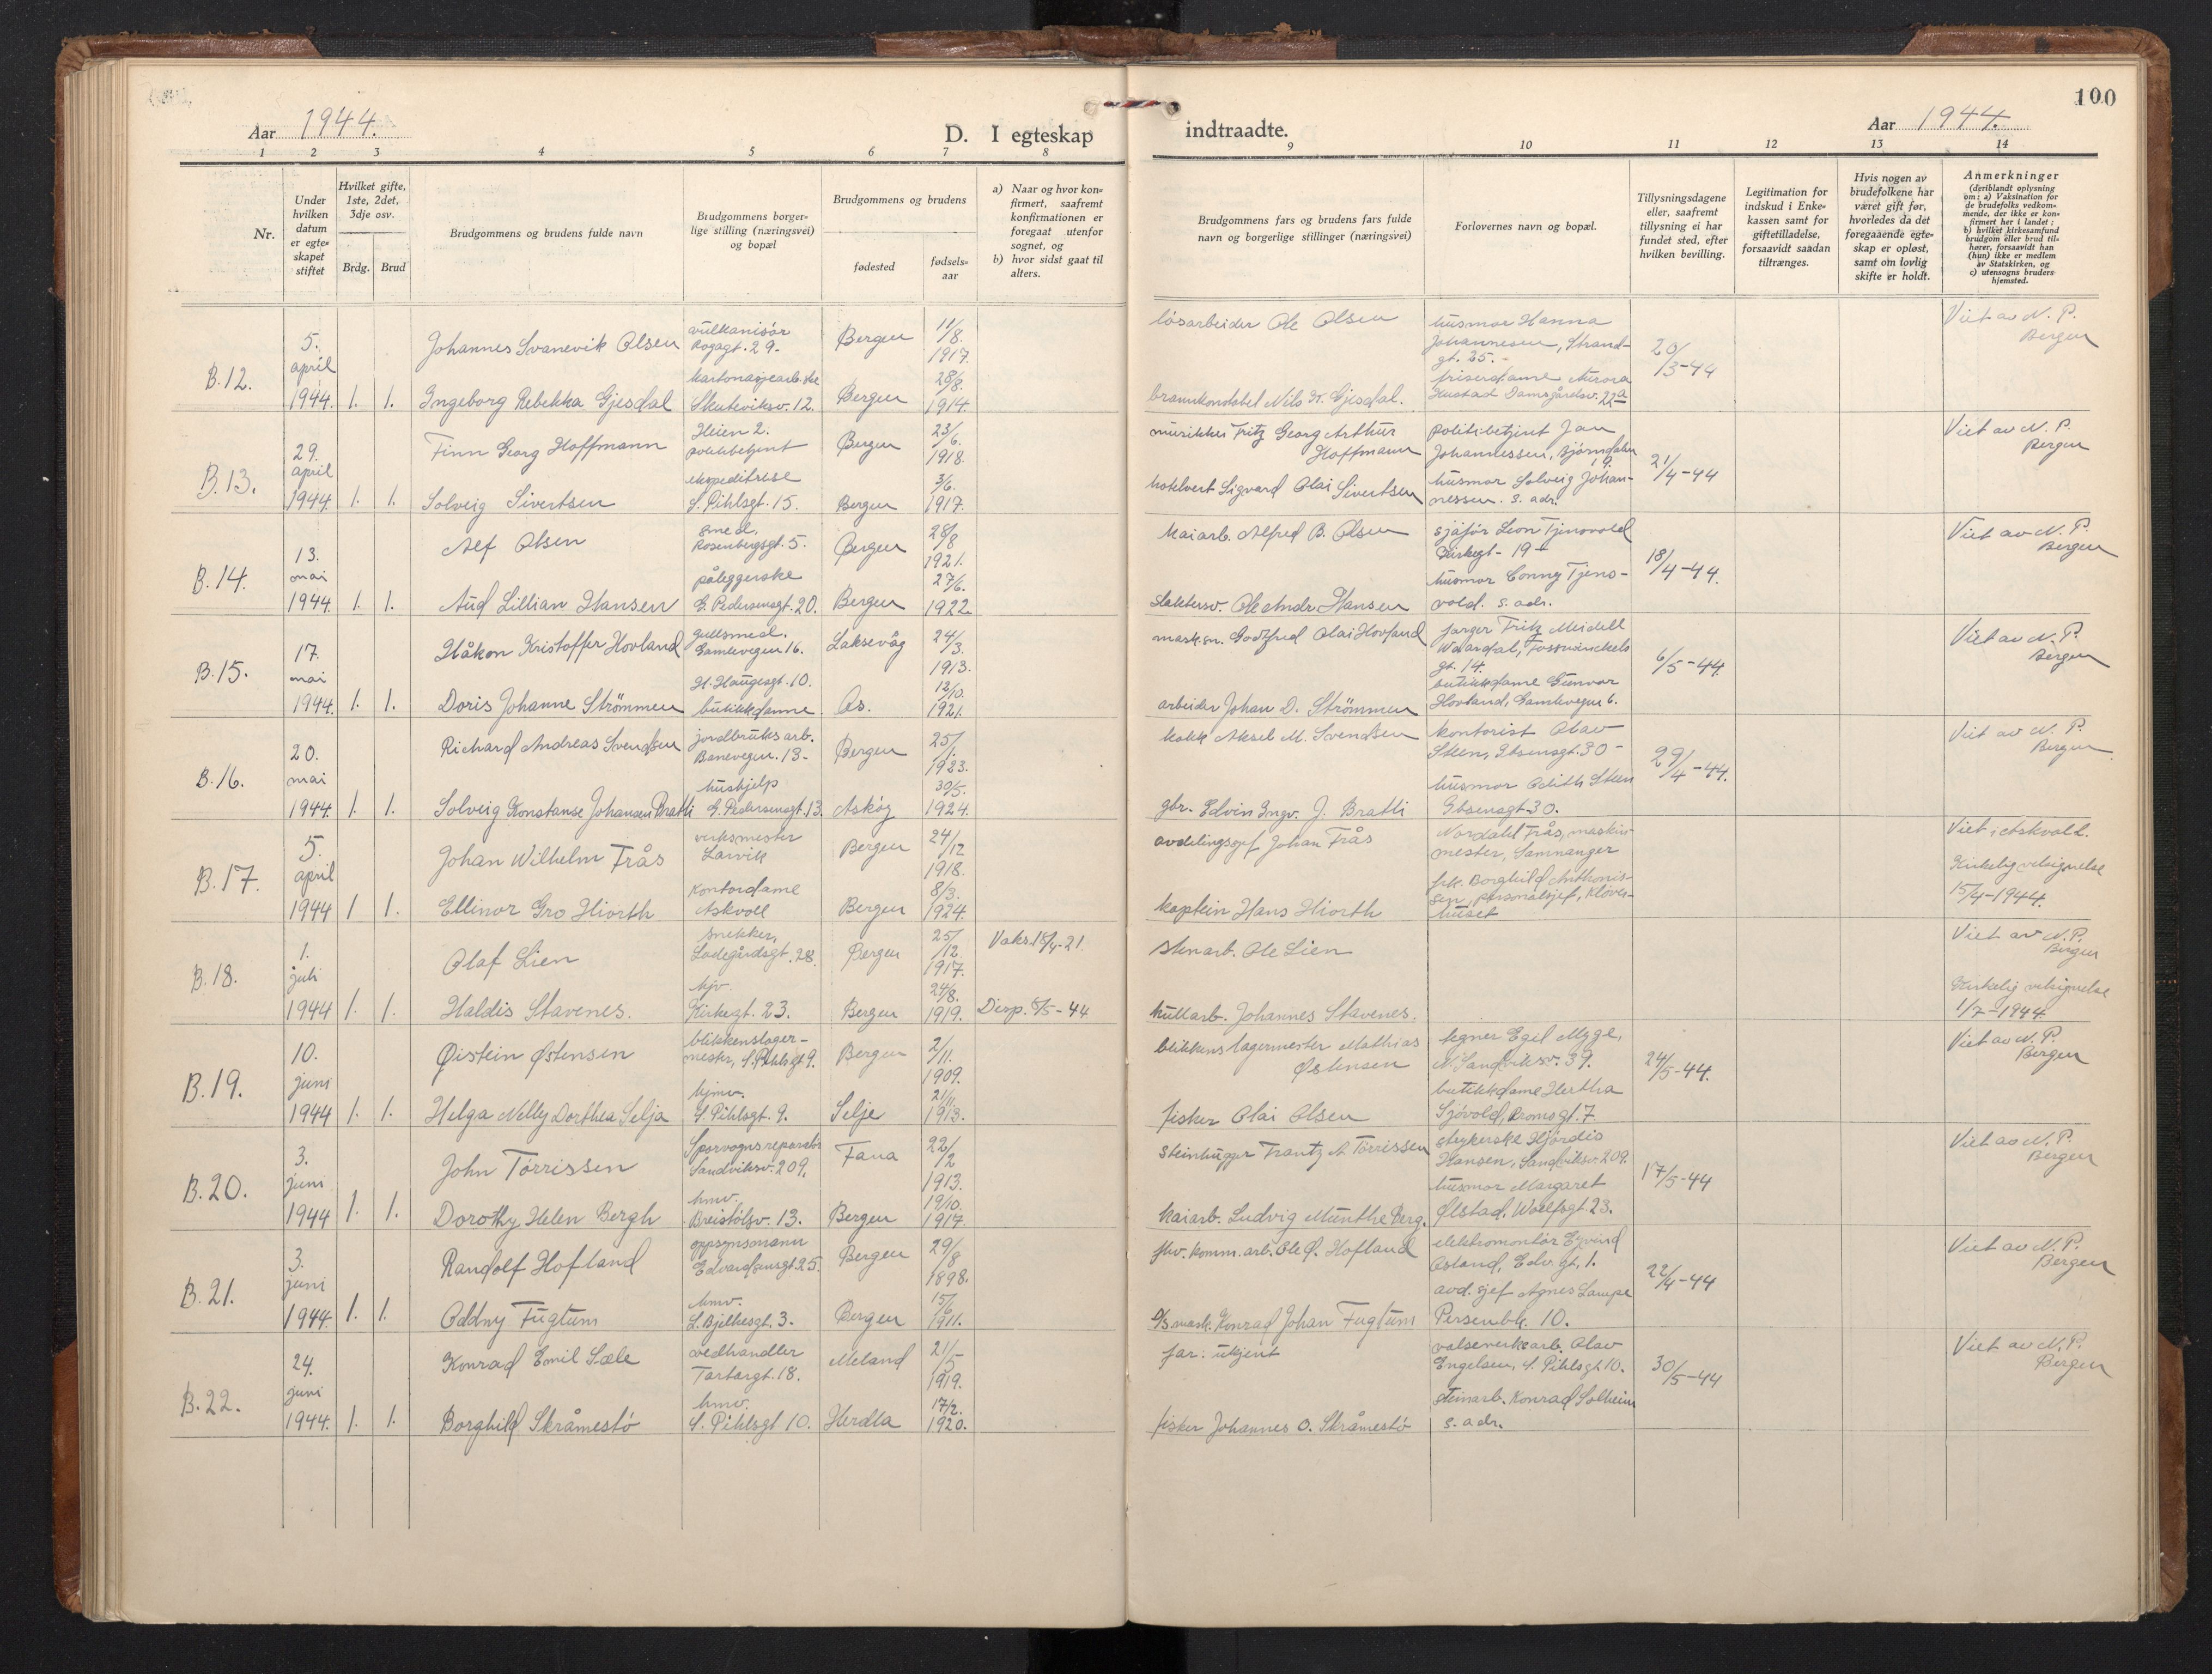 Aar 1944.
D. I egteskap
indtraadte.
Aar 1944.
100
1 2 3 4 5 6 7 8 9 10 11 12 13 14
Nr.
Under hvilken datum er egteskapet stiftet
Hvilket gifte, 1ste, 2det, 3dje osv.
Brdg. Brud
Brudgommens og brudens fulde navn
Brudgommens borgerlige stilling (næringsvei) og bopæl
Brudgommens og brudens
fødested
fødselsaar
a) Naar og hvor konfirmert, saafremt konfirmationen er foregaat utenfor sognet, og
b) hvor sidst gaat til alters.
Brudgommens fars og brudens fars fulde navn og borgerlige stillinger (næringsvei)
Forlovernes navn og bopæl.
Tillysningsdagene eller, saafremt tillysning ei har fundet sted, efter hvilken bevilling.
Legitimation for indskud i Enkekassen samt for giftetilladelse, forsaavidt saadan tiltrænges.
Hvis nogen av brudefolkene har været gift før, hvorledes da det foregaaende egteskap er opløst, samt om lovlig skifte er holdt.
Anmerkninger
(deriblandt oplysning om: a) Vaksination for de brudefolks vedkommende, der ikke er konfirmert her i landet; b) hvilket kirkesamfund brudgom eller brud tilhører, forsaavidt han (hun) ikke er medlem av Statskirken, og c) utensogns bruders hjemsted.
B.12. 5. april 1944. 1. 1.
Johannes Svanevik Olsen vulkanisør 29. Bergen 11/8. 1917. løsarbeider Ole Olsen husmor Hanna Johannesen, Strandgt. 25. 20/3-44 Viet av N. P. Bergen
Ingeborg Rebekka Gjesdal Skuteviksv. 12. Bergen 28/8. 1914. brannkonstabel Nils H. Gjesdal. friserdame Aurora Hustad Damsgårdsv. 22a
B.13. 29. april 1944. 1. 1.
Finn Georg Hoffmann Heien 2. politibetjent Bergen 23/6. 1918. musikker Fritz Georg Arthur Hoffmann politibetjent Jan Johannessen, Bjørndalen 19. 21/4-44 Viet av N. P. Bergen
Solveig Sivertsen ekspeditrise S. Pihlsgt. 15. Bergen 3/6. 1917. hotelvert Sigvard Olai Sivertsen husmor Solveig Johannessen. s. adr.
B.14. 13. mai 1944. 1. 1.
Alf Olsen smed, Rosenbergsgt. 5. Bergen 28/8 1921. kaiarb. Alfred B. Olsen sjåfør Leon Tjenovold Kirkegt- 19- 18/4-44. Viet av N. P. Bergen
Aud Lillian Hansen påleggerske G. Pedersensgt. 20. Bergen 27/6. 1922 slaktersv. Ole Andr. Hansen husmor Conny Tjenovold. s. adr.
B.15. 17. mai 1944. 1. 1.
Håkon Kristoffer Hovland gullsmed. Gamlevegen 16. Laksevåg 24/3. 1913. Godtfred Olai Hovland farger Fritz Meidell Waardal, Fosswinckelsgt. 14. 6/5-44. Viet av N. P. Bergen
Doris Johanne Strömmen H. Haugesgt. 10. butikkdame Os. 12/10. 1921. arbeider Johan D. Strömmen butikkdame Gunvor Hovland, Gamlevegen 6.
B.16. 20. mai 1944 1. 1.
Richard Andreas Svendsen jordbruksarb. Banevegen. 13- Bergen 25/1. 1923. kokk Aksel M. Svendsen kontorist Olav Steen, Ibsensgt. 30- 29/4-44. Viet av N. P. Bergen
Solveig Konstanse Johansen Bratli hushjelp G. Pedersensgt. 13. Askøy 30/5. 1924. gbr. Edvin Ingv. J. Bratli husmor Odith Steen Ibsensgt-30.
B.17. 5. april 1944 1 1.
Johan Wilhelm Trås verksmester Larvik Bergen 24/12 1918. avdelingssjef Johan Trås Nordahl Trås, maskinmester, Samnanger Viet i Askvoll. Kirkelig velsignelse 15/4-1944.
Ellinor Gro Hiorth kontordame Askvoll Bergen 8/3. 1924. kaptein Hans Hiorth frk. Borghild Anthonissen, personalsjef, Kløverhuset
B.18. 1. juli 1944 1. 1.
Olaf Lien snekker, Ladegårdsgt. 28. Bergen 25/12 1917. Vaks. 15/4-21. stenarb. Ole Lien Viet av N. P. Bergen
Haldis Stavenes. hjv. Kirkegt. 23. Bergen 24/8. 1919. Disp. 5/5-44 hullarb. Johannes Stavenes. Kirkelig velsignelse 1/7-1944.
B.19. 10. juni 1944 1. 1.
Øistein Østensen blikkenslagermester, S. Pihlsgt 9. Bergen 2/11. 1909. blikkenslagermester Mathias Østensen tegner Egil Mygl, N. Sandviksv. 39. 24/5-44. Viet av N. P. Bergen
Helga Nelly Dorthea Selja hjmv. S. Pihlsgt. 9. Selje 21/11. 1913. fisker Olai Olsen butikkdame Hertha Sjøvold, Promsgt. 7
B.20. 3. juni 1944 1. 1.
John Tørrissen Sporvognsreparatør Sandviksv. 209. Fana 22/2 1913. Steinhugger Frantz A. Tørrissen strykerske Hjørdis Hansen, Sandviksv. 209. 17/5-44 Viet av N. P. Bergen
Dorothy Helen Bergh hmv. Breistølsv. 13. Bergen 19/10. 1917. kaiarb. Ludvig Munthe Berg. husmor Margaret Ølstad. Wolffsgt. 23.
B.21. 3. juni 1944. 1. 1.
Randolf Hofland oppsynsmann Edvardsensgt. 25. Bergen 29/8 1898. fhv. komm. arb. Ole Ø. Hofland elektromontør Eyvind Osland, Edv. gt, 1. 22/4-44 Viet av N. P. Bergen
Oddny Fugtum hmv. L. Bjelkesgt. 3. Bergen 15/6 1911. Konrad Johan Fugtum avd. sjef Agnes Lampe Persenbk. 10.
B.22. 24. juni 1944. 1. 1.
Konrad Emil Sæle vedhandler Tartargt. 18. Meland 21/5 1919. far: ukjent valseverksarb. Olav Engelsen, S. Pihlsgt 10. 30/5-44 Viet av N. P. Bergen
Borghild Skråmestø hmv. S. Pihlsgt 10. Herdla 17/2. 1920. fisker Johannes O. Skråmestø steinarb. Konrad Solheim s. adr.